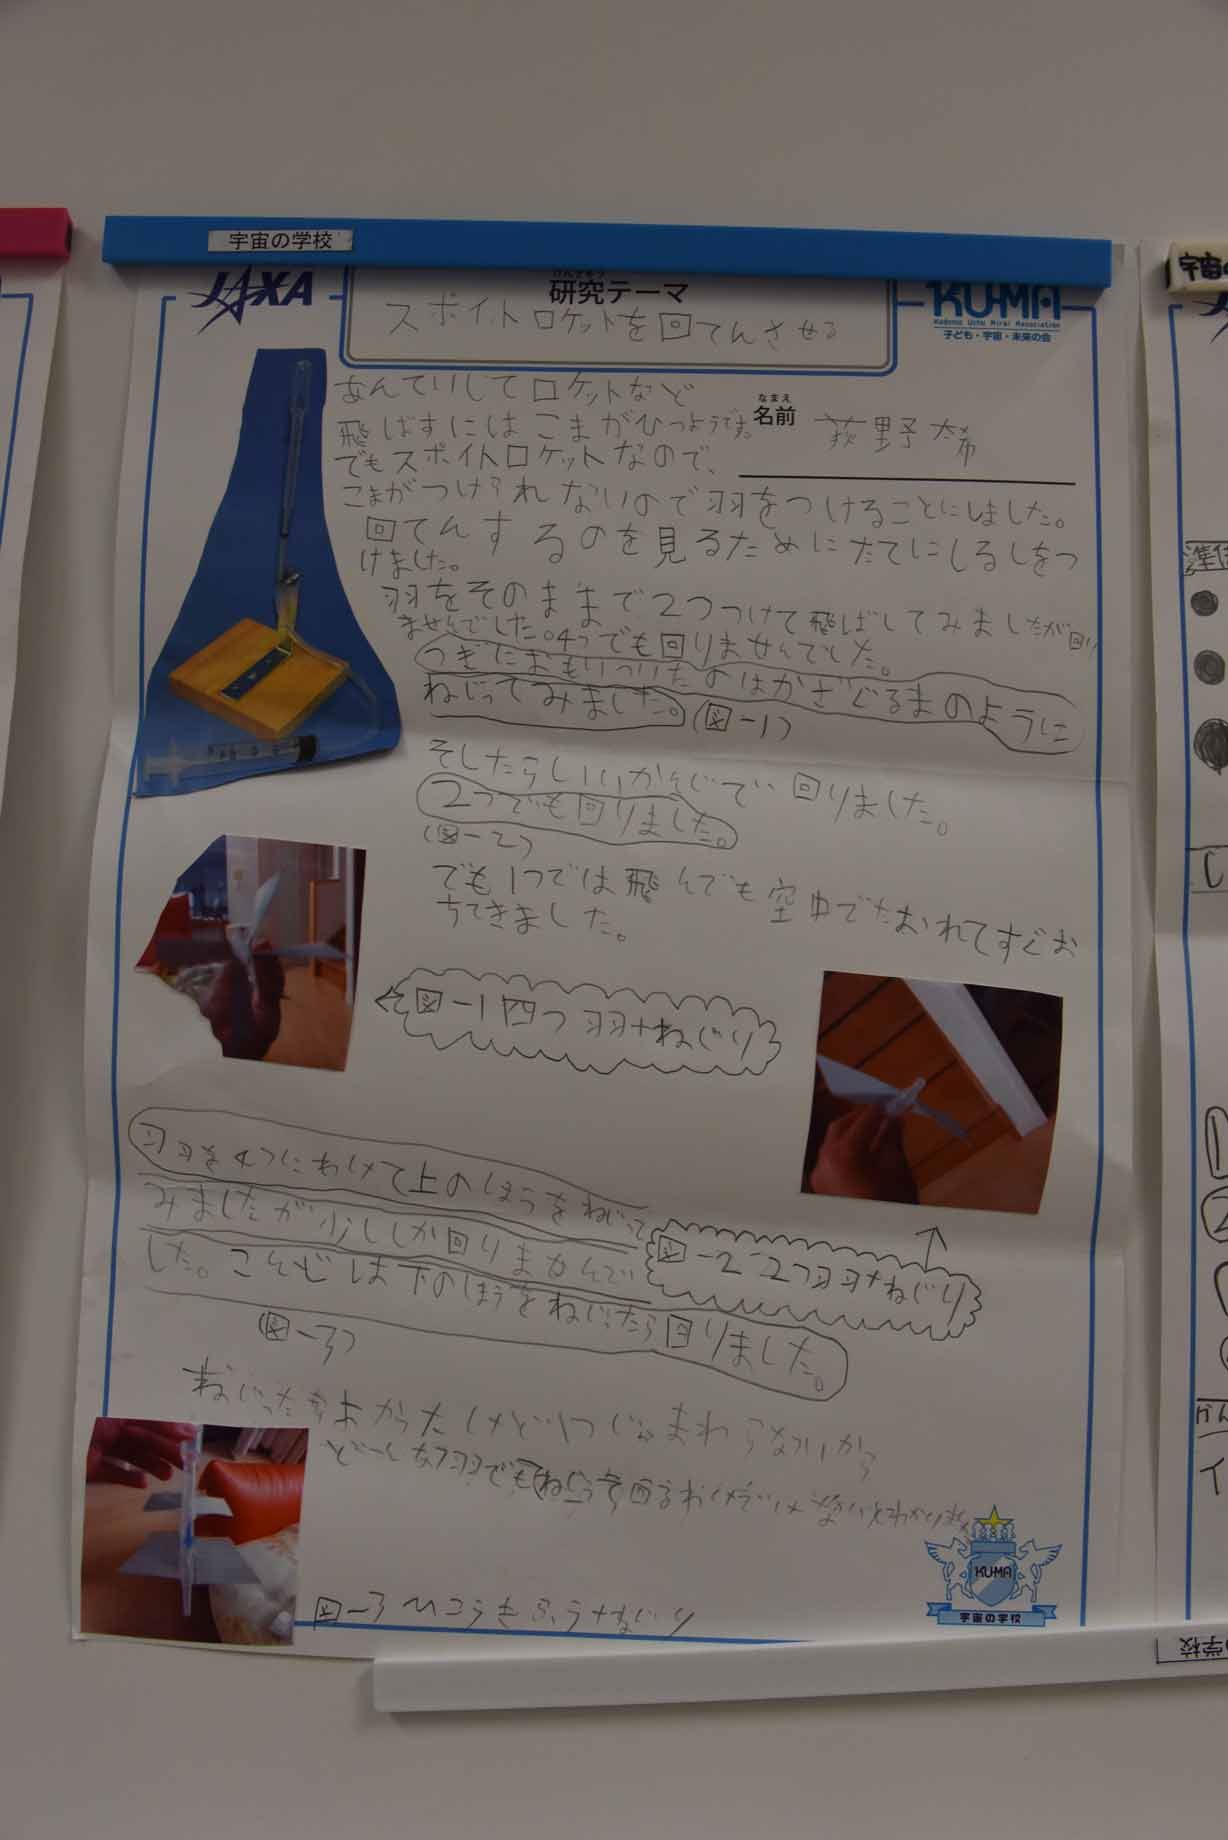 宇宙の学校
JAXA
けんきゅう
研究テーマ
スポイトロケットを回てんさせる
KU-MA
Kodomo Uchu Mirai Association
子ども・宇宙・未来の会
なまえ
名前
荻野 太希
あんていしてロケットなど
飛ばすにはこまがひつようです。
でもスポイトロケットなので、
こまがつけられないので羽をつけることにしました。
回てんするのを見るためにたてにしるしをつ
けました。
羽をそのままで2つつけて飛ばしてみましたが回り
ませんでした。4つでも回りませんでした。
つぎにおもいついたのはかざぐるまのように
ねじってみました。(図-1)
そしたらいいかんじで回りました。
2つでも回りました。
(図-2)
でも1つでは飛んでも空中でたおれてすぐお
ちてきました。
図-1 四つ羽+ねじり
羽を4つにわけて上のほうをねじって
みましたが少ししか回りませんで
した。こんどは下のほうをねじったら回りました。
図-2 2つ羽+ねじり
(図-3)
ねじった
まわらないから
どんな羽でもねじ
図-3 ひこうきふう+ねじり
KUMA
宇宙の学校
宇宙の
準備